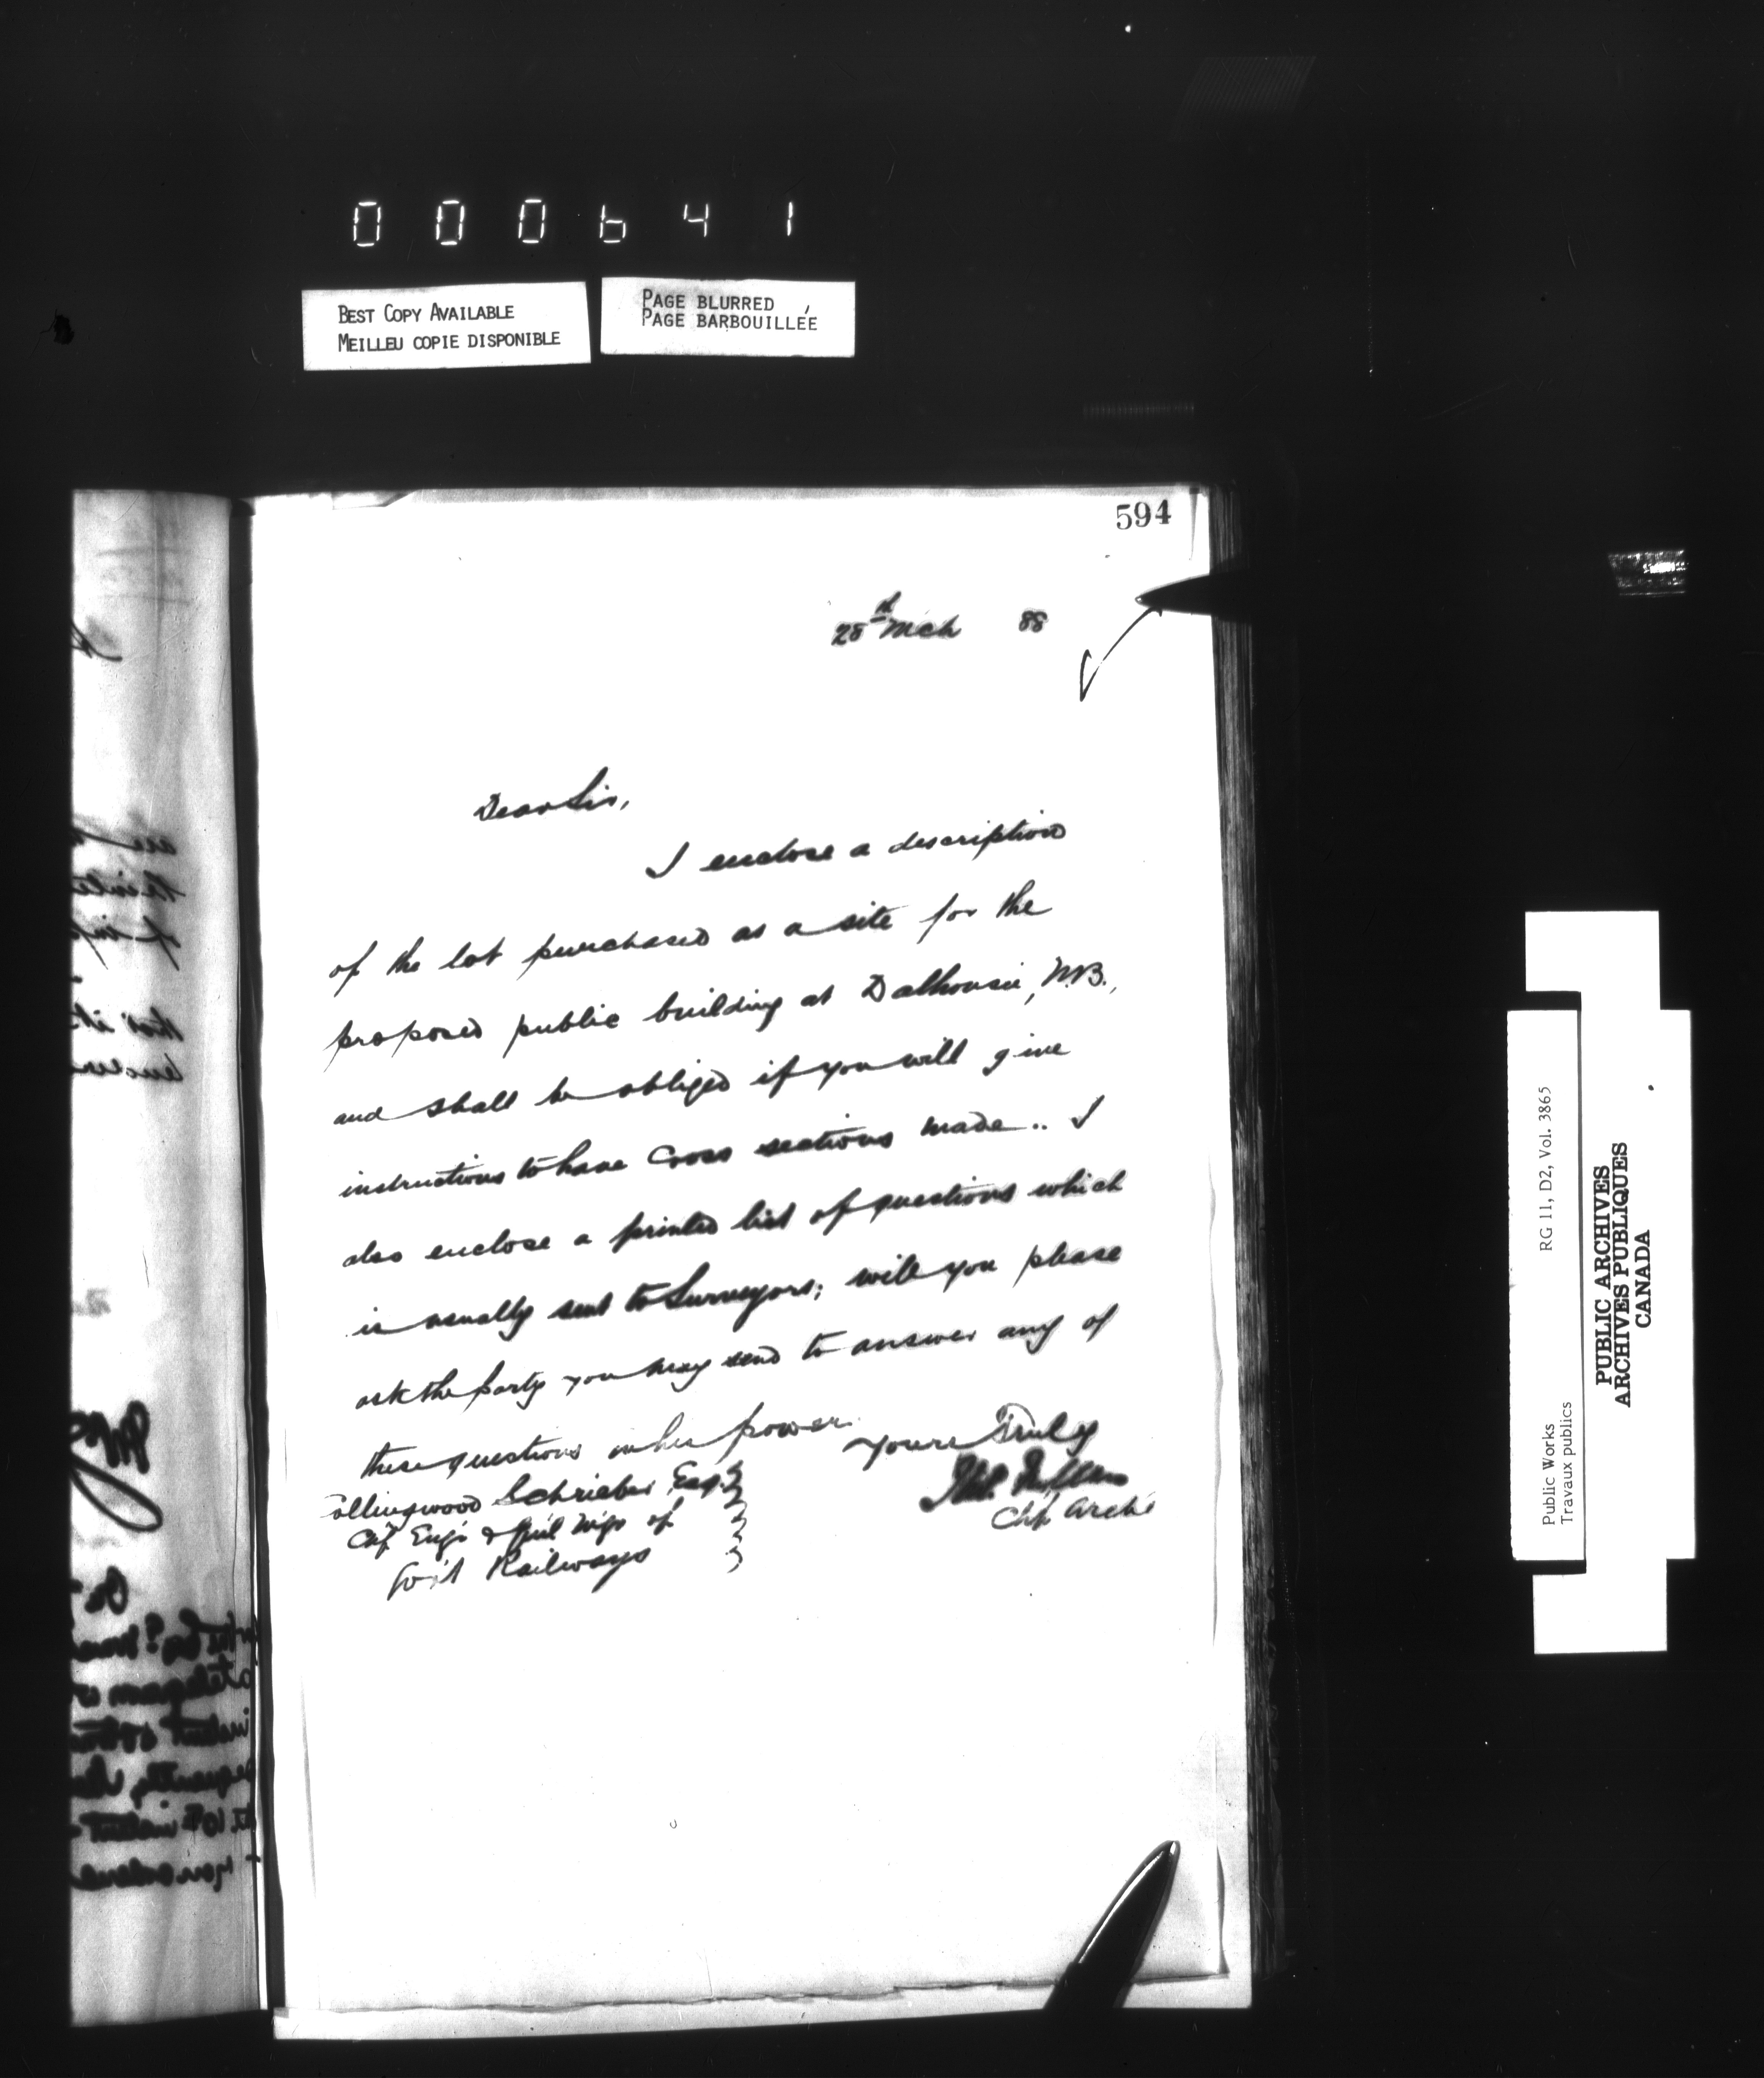 000641
BEST COPY AVAILABLE
MEILLEU COPIE DISPONIBLE
PAGE BLURRED
PAGE BARBOUILLÉE
594
28th Mch 88
Dear Sir,
I enclose a description
of the lot purchased as a site for the
proposed public building at Dalhousie, N.B.,
and shall be obliged if you will give
instructions to have Cross sections made.. I
also enclose a printed list of questions which
is usually sent to Surveyors; will you please
ask the party you may send to answer any of
these questions in his power.
Yours Truly
Chf Archt
ollingwood Schrieber, Esq.
Chf Engr & Genl Mgr of
Gov't Railways
Public Works RG 11, D2, Vol. 3865
Travaux publics
PUBLIC ARCHIVES
ARCHIVES PUBLIQUES
CANADA